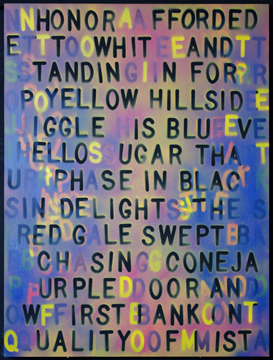 NHONORA FFORDED
ETTTOOWHIT EEANDTT
STANDINGIIN FOR
OPOYELLOW HILLSIDE
IGGLE HIS BLUEEVE
HELLOSSUGAR THA T
PHASE IN BLAC
SIN DELIGHTS THE S
RED GALE SWEPT B
CHASINGGCONEJA
PURPLEDDOORAND
OWFFIRST BANKCONT
QUALITYOOFMISTA